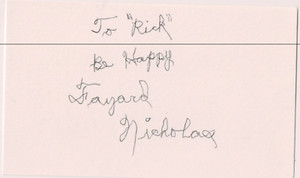 To "Rick"
Be Happy
Fayard
Nicholas